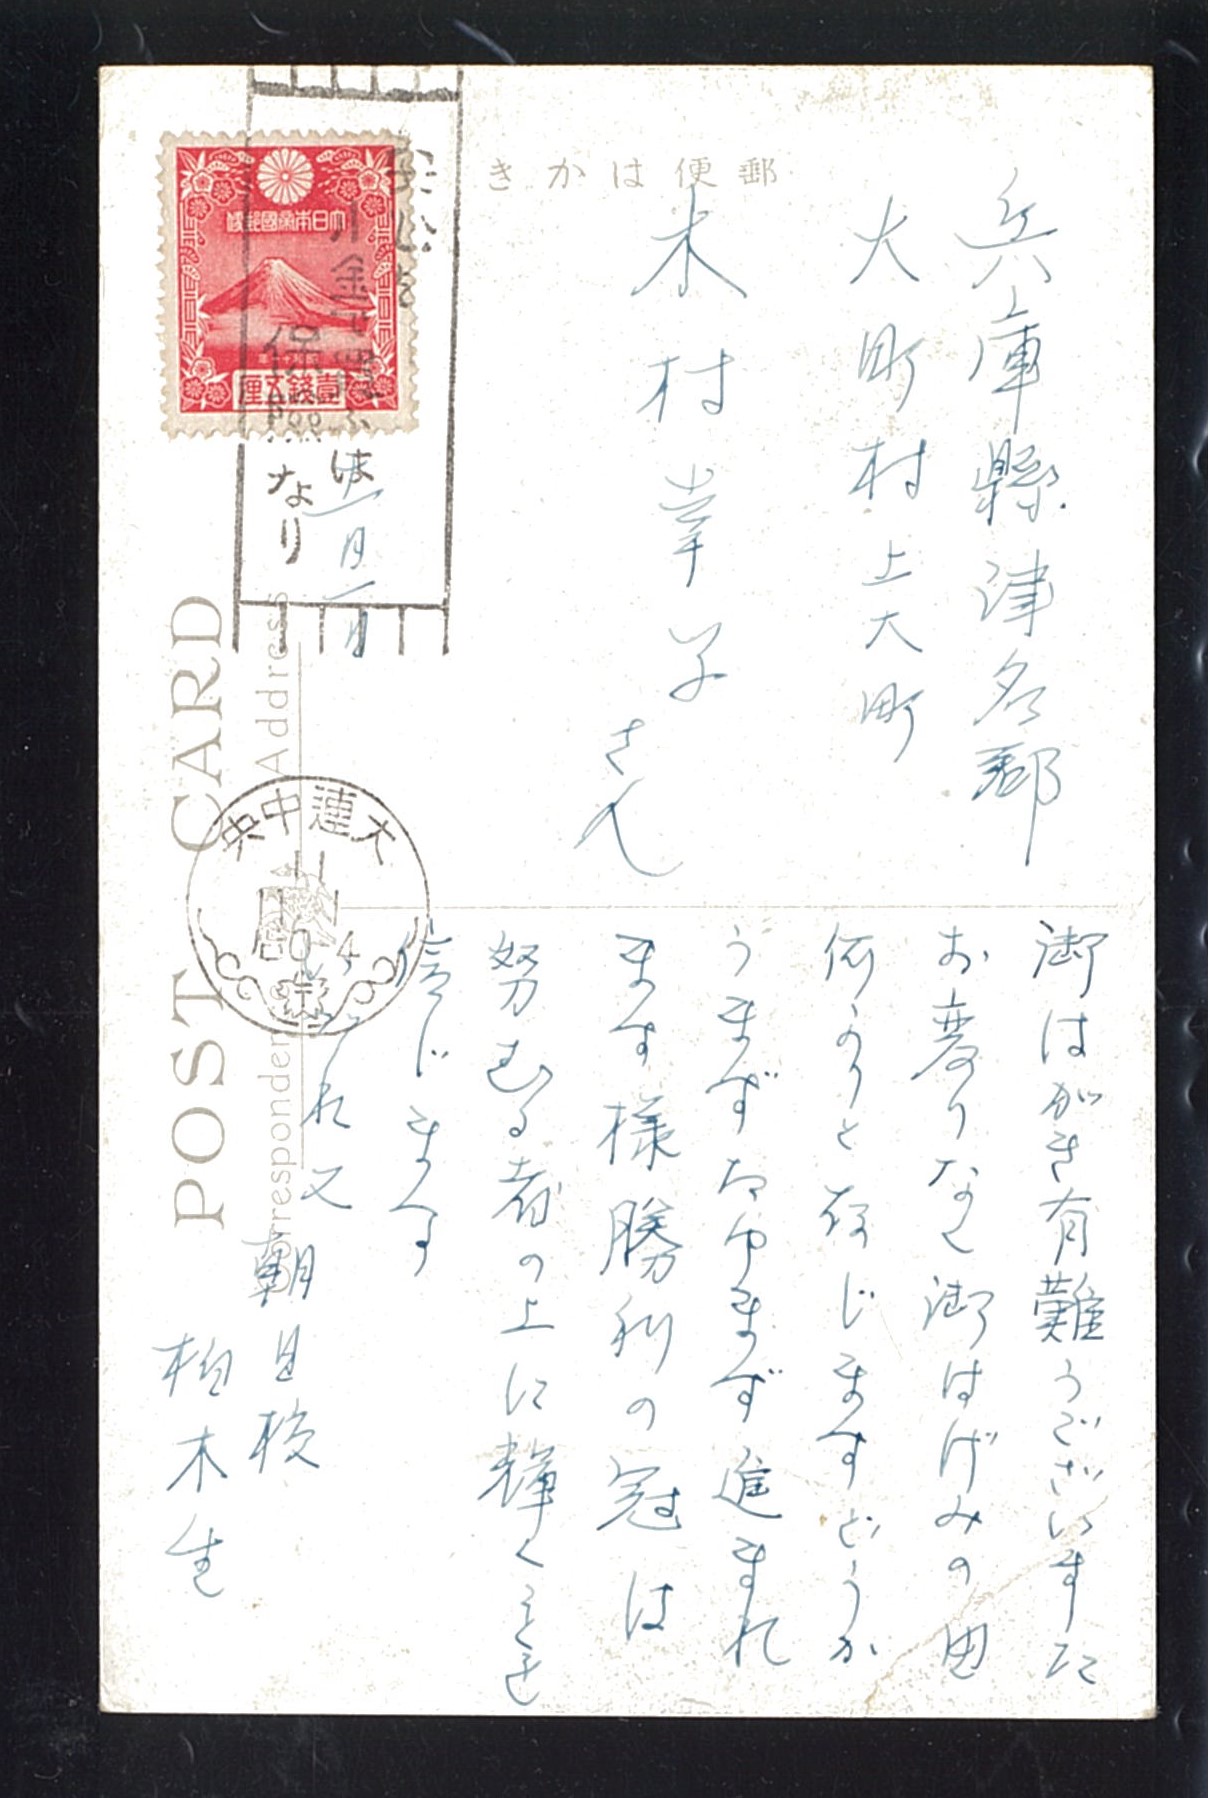 郵便はかき
兵庫縣津名郡
大町村上大町
木村幸子
さん
大日本帝國郵便
壹錢五厘
安心を
は
保
なり
一月一日
大連中央
11
1 1
0-4
POST CARD
Correspondence
Address
御はがき有難うございました
お変りなく御はげみの由
何よりと存じますどうか
うまずたゆまず進まれ
ます様勝利の冠は
努むる者の上に輝くことを
信じます
又
朝日校
柏木生